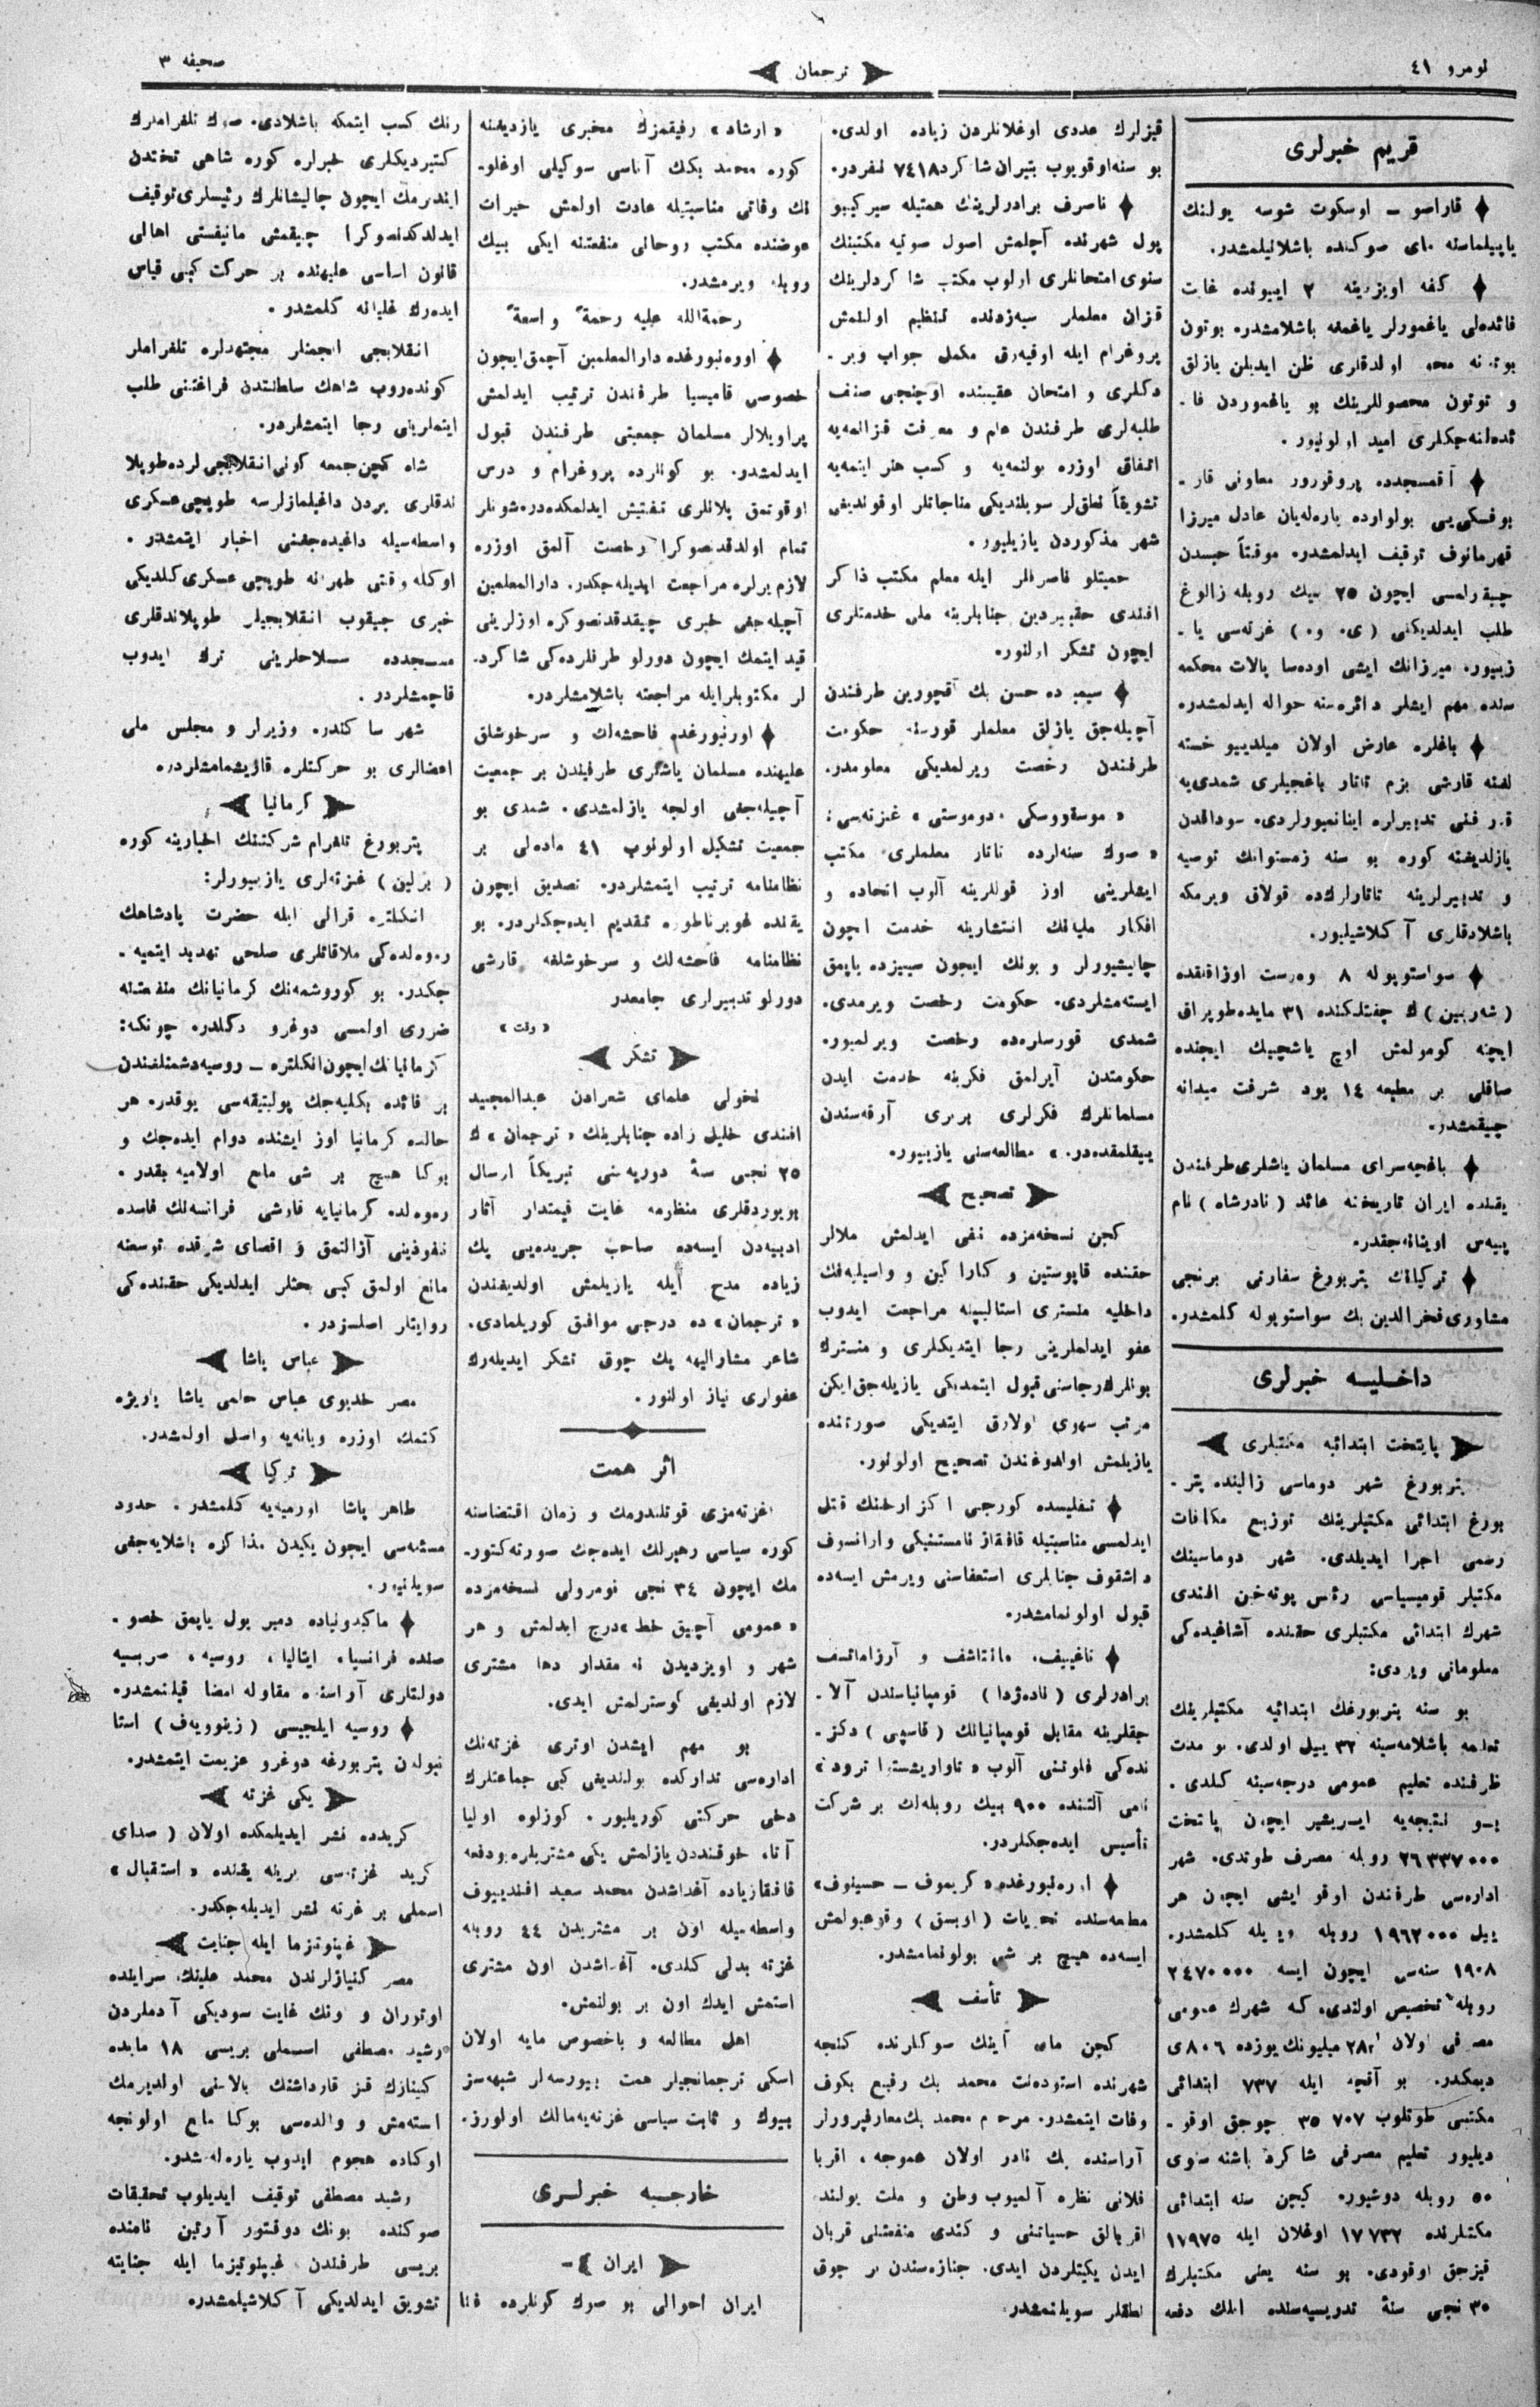 نومرو ٤١
ترجمان
صحيفه ٣
قريم خبرلری
قاراصو ــ اوسكوت شوسه يولنك
ياپيلماسنه مای صوكنده باشلانيلمشدر.
كفه اويزدينه ٢ ايیونده غایت
فائده‌لی ياغمورلر ياغمغه باشلامشدر. بوتون
اولدقلری ظن ايديلن يازلق
و توتون محصوللرينك بو ياغموردن فا ـ
ئده‌لنه‌جكلری اميد اولونيور.
آقمسجدده پروقورور معاونی قار ـ
بوفسكی‌يی بولوارده ياره‌له‌يان عادل ميرزا
قهرمانوف توقيف ايدلمشدر. موقتاً حبسدن
چيقرلمسی ايچون ٢٥ بيك روبله زالوغ
طلب ايدلديكنی (ی. و.) غزته‌سی يا ـ
زييور. ميرزانك ايشی اوده‌سا پالات محكمه
سنده مهم ايشلر دائره‌سنه حواله ايدلمشدر.
باغلره عارض اولان ميلديیو خسته
لغنه قارشی بزم تاتار باغجيلری شمدی‌يه
قدر فنی تدبيرلره اينانميورلردی. سوداقدن
يازلديغنه كوره بو سنه زمستوانك توصيه
و تدبيرلرينه تاتارلرده قولاق ويرمكه
باشلادقلری آكلاشيليور.
سواستوپوله ٨ ويرست اوزاقلقده
(شه‌ربين) ك چفتلكنده ٣١ مايده طوپراق
ايچنه كومولمش اوچ ياشچيك ايچنده
صاقلی بر مطبعه ١٤ پود شرفت ميدانه
چيقمشدر.
باغچه‌سرای مسلمان ياشلری طرفندن
يقينده ايران تاريخنه عائد (نادرشاه) نام
پييه‌س اوينانه‌جقدر.
تركيانك پتربورغ سفارتی برنجی
مشاوری فخرالدين بك سواستوپوله كلمشدر.
داخليه خبرلری
پايتخت ابتدائيه مكتبلری
پتربورغ شهر دوماسی زالنده پتر ـ
بورغ ابتدائی مكتبلرينك توزيع مكافات
رسمی اجرا ايديلدی. شهر دوماسينك
مكتبلر قوميسياسی رئيس پوته‌خن افندی
شهرك ابتدائی مكتبلری حقنده آشاغيده‌كی
معلوماتی ويردی:
بو سنه پتربورغك ابتدائيه مكتبلرينك
تعليمه باشلامه‌سينه ٣٢ ييل اولدی. بو مدت
ظرفنده تعليم عمومی درجه‌سينه كلدی.
بو نتيجه‌يه ايريشير ايچون پايتخت
٢٦٣٣٧٠٠٠ روبله مصرف طوتدی. شهر
اداره‌سی طرفندن اوقو ايشی ايچون هر
ييل ١٩٦٢٠٠٠ روبله ويريله كلمشدر.
١٩٠٨ سنه‌سی ايچون ايسه ٢٤٧٠٠٠٠
روبله تخصيص اولندی. كه شهرك عمومی
مصرفی اولان ٢٨ ميليونك يوزده ٨٠٦ ی
ديمكدر. بو آقچه ايله ٧٣٧ ابتدائی
مكتبی طوتلوب ٣٥٧٠٧ چوجق اوقو ـ
ديليور تعليم مصرفی شاكرد باشنه سنوی
٥٥ روبله دوشيور. كچن سنه ابتدائی
مكتبلرنده ١٧٧٣٢ اوغلان ايله ١٧٩٧٥
قيزجق اوقودی. بو سنه يعنی مكتبلرك
٣٥ نجی سنۀ تدريسيه‌سنده ايلك دفعه
قيزلرك عددی اوغلانلردن زياده اولدی.
بو سنه اوقويوب بتيران شاكرد ٧٤١٨ نفردر.
ناصرف برادرلرينك همتيله سيركيیو
پول شهرنده آچلمش اصول صوتيه مكتبنك
سنوی امتحانلری اولوب مكتب شاكردلرينك
قزان معلملر سيه‌زدنده تنظيم اولنمش
پروغرام ايله اوقيه‌رق مكمل جواب وير ـ
دكلری و امتحان عقيبنده اوچنجی صنف
طلبه‌لری طرفندن علم و معرفت قزانمه‌يه
اتفاق اوزره بولنمه‌يه و كسب هنر ايتمه‌يه
تشويقاً نطقلر سويلنديكی مناجاتلر اوقونديغی
شهر مذكوردن يازيليور.
حميتلو ناصرفلر ايله معلم مكتب ذاكر
افندی حقيردين جنابلرينه ملی خدمتلری
ايچون تشكر اولنور.
سيمبرده حسن بك آقچورين طرفندن
آچيله‌جق يازلق معلملر قورسنه حكومت
طرفندن رخصت ويرلمديكی معلومدر.
«موسقووسكی ودوموستی» غزته‌سی:
«صوك سنه‌لرده تاتار معلملری مكتب
ايشلرينی اوز قوللرينه آلوب اتحاده و
افكار مليه‌نك انتشارينه خدمت ايچون
چاليشيورلر و بونك ايچون سييزده ياپمق
ايسته‌مشلردی. حكومت رخصت ويرمدی.
شمدی قورسلره‌ده رخصت ويرلميور.
حكومتدن آيرلمق فكرينه خدمت ايدن
مسلمانلرك فكرلری بربری آرقه‌سندن
ييقلمقده‌در.» مطالعه‌سنی يازييور.
تصحيح
كچن نسخه‌مزده نفی ايدلمش ملالر
حقنده قاپوستين و كاراكين و واسيليه‌فك
داخليه منستری استاليپينه مراجعت ايدوب
عفو ايدلملرينی رجا ايتديكلری و منسترك
بونلرك رجاسنی قبول ايتمديكی يازيله‌جق ايكن
مرتب سهوی اولارق ايتديكی صورتنده
يازيلمش اولدوغندن تصحيح اولونور.
تفليسده كورجی اكزارخنك قتل
ايدلمسی مناسبتيله قافقاز نامستنيكی وارانسوف
داشقوف جنابلری استعفاسنی ويرمش ايسه‌ده
قبول اولونمامشدر.
ناغييف، مانتاشف و آرزامانسف
برادرلری (ناده‌ژدا) قومپانياسندن آلا ـ
جقلرينه مقابل قومپانيانك (قاسپی) دكز ـ
نده‌كی فلوتنی آلوب «تاواريشستوا ترود»
نامی آلتنده ٩٠٠ بيك روبله‌لك بر شركت
تأسيس ايده‌جكلردر.
اوره‌نبورغده «كريموف ــ حسينوف»
مطبعه‌سنده تحريات (اوبسق) وقوعبولمش
ايسه‌ده هيچ بر شی بولونمامشدر.
تأسف
كچن مای آينك سوكلرنده كنجه
شهرنده استوده‌نت محمد بك رفيع بكوف
وفات ايتمشدر. مرحوم محمد بك معارفپرورلر
آراسنده بك نادر اولان عموجه، اقربا
فلانی نظره آلميوب وطن و ملت يولنده
اقربالق حسياتنی و كندی منفعتنی قربان
ايدن يكيتلردن ايدی. جنازه‌سندن بر چوق
نطقلر سويلنمشدر.
«ارشاد» رفيقمزك مخبری يازديغنه
كوره محمد بكك آناسی سوكيلی اوغلو ـ
نك وفاتی مناسبتيله عادت اولمش خيرات
عوضنده مكتب روحانی منفعتنه ايكی بيك
روبله ويرمشدر.
رحمةالله عليه رحمةً واسعةً
اوره‌نبورغده دارالمعلمين آچمق ايچون
خصوصی قاميسيا طرفندن ترتيب ايدلمش
پراويلالر مسلمان جمعيتی طرفندن قبول
ايدلمشدر. بو كونلرده پروغرام و درس
اوقوتمق پلانلری تفتيش ايدلمكده‌در. شونلر
تمام اولدقدنصوكرا رخصت آلمق اوزره
لازم يرلره مراجعت ايديله‌جكدر. دارالمعلمين
آچيله‌جغی خبری چيقدقدنصوكره اوزلرينی
قيد ايتمك ايچون دورلو طرفلرده‌كی شاكرد.
لر مكتوبلر ايله مراجعته باشلامشلردر.
اورنبورغده فاحشه‌لك و سرخوشلق
عليهنده مسلمان ياشلری طرفندن بر جمعيت
آچيله‌جغی اولجه يازلمشدی. شمدی بو
جمعيت تشكيل اولونوب ٤١ ماده‌لی بر
نظامنامه ترتيب ايتمشلردر. تصديق ايچون
يقنده غوبرناطوره تقديم ايده‌جكلردر. بو
نظامنامه فاحشه‌لك و سرخوشلغه قارشی
دورلو تدبيرلری جامعدر
«وقت»
تشكر
نخولی علمای شعرادن عبدالمجيد
افندی خليل زاده جنابلرينك «ترجمان» ك
٢٥ نجی سنۀ دوريه‌سنی تبريكاً ارسال
بويوردقلری منظومه غايت قيمتدار آثار
ادبيه‌دن ايسه‌ده صاحب جريده‌يی پك
زياده مدح ايله يازيلمش اولديغندن
«ترجمان» ده درجی موافق كوريلمادی.
شاعر مشاراليهه پك چوق تشكر ايديله‌رك
عفواری نياز اولنور.
اثر همت
غزته‌مزی قوتلندرمك و زمان اقتضاسنه
كوره سياسی رهبرلك ايده‌جك صورته كتور ـ
مك ايچون ٣٤ نجی نومرولی نسخه‌مزده
«عمومی آچيق خط» درج ايدلمش و هر
شهر و اويزديدن نه مقدار دها مشتری
لازم اولديغی كوسترلمش ايدی.
بو مهم ايشدن اوتری غزته‌نك
اداره‌سی تداركده بولنديغی كبی جماعتلرك
دخی حركتی كوريليور. كوزلوه اوليا
آتا، خوقنددن يازلمش يكی مشتريلره بودفعه
قافقازياده آغداشدن محمد سعيد افندييوف
واسطه‌سيله اون بر مشتريدن ٤٤ روبله
غزته بدلی كلدی. آغداشدن اون مشتری
استمش ايدك اون بر بولنمش.
اهل مطالعه و باخصوص مايه اولان
اسكی ترجمانجيلر همت بيورسه‌لر شبهه‌سز
بيوك و ثابت سياسی غزته‌يه مالك اولورز.
خارجيه خبرلری
ايران
ايران احوالی بو صوك كونلرده فنا
رنك كسب ايتمكه باشلادی. صوك تلغرافلرك
كتيرديكلری خبرلره كوره شاهی تختدن
ايندرمك ايچون چاليشانلرك رئيسلری توقيف
ايدلدكدنصوكرا چيقمش مانيفستی اهالی
قانون اساسی عليهنده بر حركت كبی قياس
ايدەرك غليانه كلمشدر.
انقلابجی انجمنلر مجتهدلره تلغرافلر
كوندەروب شاهك سلطنتدن فراغتنی طلب
ايتملرينی رجا ايتمشلردر.
شاه كچن جمعه كونی انقلابجيلرده طوپلا
ندقلری يردن داغيلمازلرسه طوپچی عسكری
واسطه‌سيله داغيده‌جغنی اخبار ايتمشدر.
اوكله وقتی طهرانه طوپچی عسكری كلديكی
خبری چيقوب انقلابجيلر طوپلاندقلری
مسجدده سلاحلرينی ترك ايدوب
قاچمشلردر.
شهر ساكندر. وزيرلر و مجلس ملی
اعضالری بو حركتلره قاريشمامشلردر.
كرمانيا
پتربورغ تلغرام شركتنك اخبارينه كوره
(برلين) غزته‌لری يازييورلر:
انكلتره قرالی ايله حضرت پادشاهك
ره‌وه‌لده‌كی ملاقاتلری صلحی تهديد ايتميه ـ
جكدر. بو كوروشمه‌نك كرمانيانك منفعتنه
ضرری اولمسی دوغرو دكلدر. چونكه:
كرمانيانك ايچون انكلتره ــ روسيه دشمنلغندن
بر فائده بكليه‌جك پوليتيقه‌سی يوقدر. هر
حالده كرمانيا اوز ايشنده دوام ايده‌جك و
بوكا هيچ بر شی مانع اولاميه‌جقدر.
ره‌وه‌لده كرمانيايه قارشی فرانسه‌نك فاسده
نفوذينی آزالتمق و اقصای شرقده توسعنه
مانع اولمق كبی بحثلر ايدلديكی حقنده‌كی
روايتلر اصلسزدر.
عباس پاشا
مصر خديوی عباس حلمی پاشا پاريژه
كتمك اوزره ويانه‌يه واصل اولمشدر.
تركيا
طاهر پاشا اورميه‌يه كلمشدر. حدود
مسئله‌سی ايچون يكيدن مذاكره باشلايه‌جغی
سويلنيور.
ماكيدونياده دمير يول ياپمق خصو ـ
صنده فرانسيا، ايتاليا، روسيه، صربيه
دولتلری آراسنده مقاوله امضا قيلنمشدر.
روسيه ايلچيسی (زينوويه‌ف) استا
نبولدن پتربورغه دوغرو عزيمت ايتمشدر.
يكی غزته
كريدده نشر ايديلمكده اولان (صدای
كريد غزته‌سی يرينه يقنده «استقبال»
اسملی بر غزته نشر ايديله‌جكدر.
غيپنوتزما ايله جنايت
مصر كنيازلرندن محمد علينك سراينده
اوتوران و اونك غايت سوديكی آدملردن
رشيد مصطفی اسملی بريسی ١٨ مايده
كنيازك قز قارداشنك بالاسنی اولديرمك
استه‌مش و والده‌سی بوكا مانع اولونجه
اوكاده هجوم ايدوب ياره‌له‌مشدر.
رشيد مصطفی توقيف ايديلوب تحقيقات
صوكنده بونك دوقتور آرتين نامنده
بريسی طرفندن غيپنوتيزما ايله جنايته
تشويق ايدلديكی آكلاشيلمشدر.